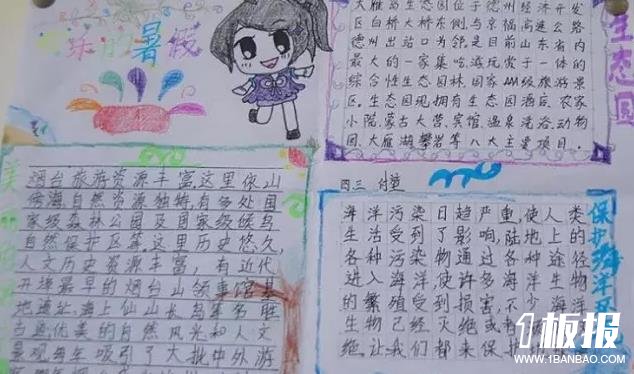 快乐的暑假
大雁岛生态园位于德州经济开发
区白桥大桥东侧,与京福高速公路
德州出站口为邻是目前山东省内
最大的一家集吃游玩赏于一体的
综合性生态园林,国家AAA级旅游景
区.生态园现拥有生态园酒店、农家
小院.蒙古大营、宾馆.温泉洗浴.动物
园.大雁湖.攀岩等八大主要项目.
生态园
烟台旅游资源丰富,这里依山
傍海,自然资源独特,有多处国
家级森林公园及国家级候鸟
自然保护区等.这里历史悠久,
人文历史资源丰富,有近代
开埠最早的烟台山领事馆基
地遗址.海上仙山长岛等多
优美的自然风光和人文
景观.每年吸引了大批中外游
四三
海洋污染日趋严重,使人类
生活受到了影响,陆地上的
各种污染物通过各种途径
进入海洋使许多海洋生物
的繁殖受到损害,不少海洋
生物已经灭绝或
绝.让我们都来保护
保护海洋
1板报
WWW.1BANBAO.COM